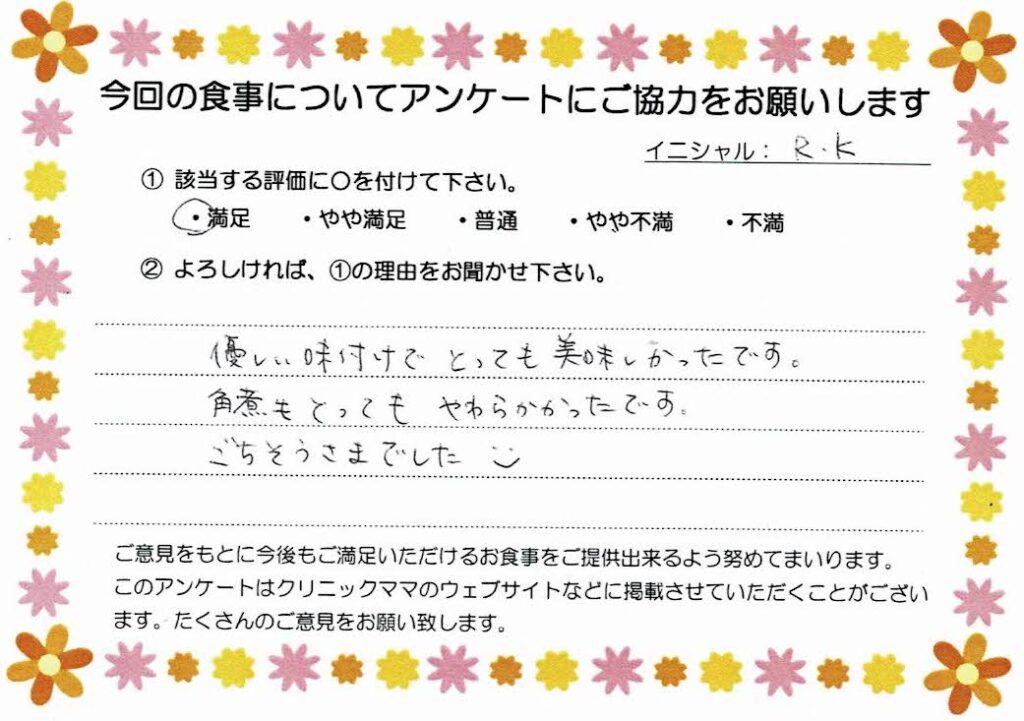 今回の食事についてアンケートにご協力をお願いします
イニシャル： R.K
① 該当する評価に〇を付けて下さい。
・満足 ・やや満足 ・普通 ・やや不満 ・不満
② よろしければ、①の理由をお聞かせ下さい。
優しい味付けでとっても美味しかったです。
角煮もとっても やわらかかったです。
ごちそうさまでした
ご意見をもとに今後もご満足いただけるお食事をご提供出来るよう努めてまいります。
このアンケートはクリニックママのウェブサイトなどに掲載させていただくことがござい
ます。たくさんのご意見をお願い致します。